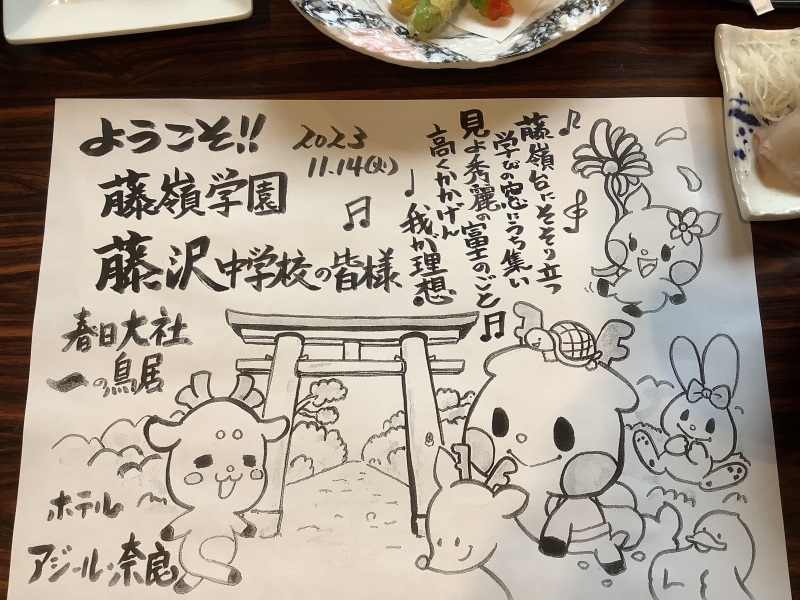 ようこそ!!
2023
11.14(火)
藤嶺学園
藤沢中学校の皆様
藤嶺台にそそり立つ
学びの窓にうち集い
見よ秀麗の富士のごと
高くかかげん
我が理想
春日大社
一の鳥居
ホテル
アジール・奈良